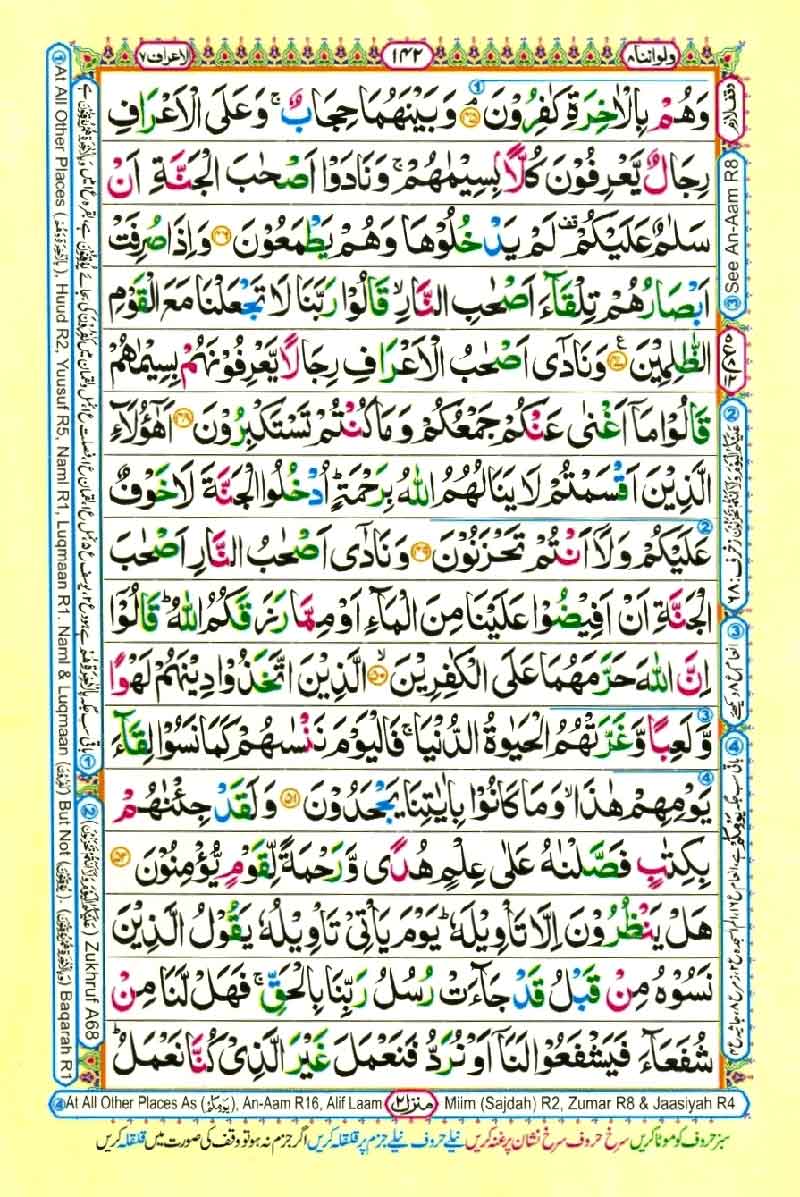 الاعراف ٧
١٤٢
ولو اننا ٨
وَهُمْ بِالْاٰخِرَةِ كٰفِرُوْنَ ۘ ﴿۴۵﴾ وَبَيْنَهُمَا حِجَابٌ ۚ وَعَلَى الْاَعْرَافِ
رِجَالٌ يَّعْرِفُوْنَ كُلًّاۢ بِسِيْمٰىهُمْ ۚ وَنَادَوْا اَصْحٰبَ الْجَنَّةِ اَنْ
سَلٰمٌ عَلَيْكُمْ ۣ لَمْ يَدْخُلُوْهَا وَهُمْ يَطْمَعُوْنَ ﴿۴۶﴾ وَاِذَا صُرِفَتْ
اَبْصَارُهُمْ تِلْقَآءَ اَصْحٰبِ النَّارِ ۙ قَالُوْا رَبَّنَا لَا تَجْعَلْنَا مَعَ الْقَوْمِ
الظّٰلِمِيْنَ ﴿۴۷﴾ وَنَادٰٓى اَصْحٰبُ الْاَعْرَافِ رِجَالًا يَّعْرِفُوْنَهُمْ بِسِيْمٰىهُمْ
قَالُوْا مَاۤ اَغْنٰى عَنْكُمْ جَمْعُكُمْ وَمَا كُنْتُمْ تَسْتَكْبِرُوْنَ ﴿۴۸﴾ اَهٰٓؤُلَآءِ
الَّذِيْنَ اَقْسَمْتُمْ لَا يَنَالُهُمُ اللّٰهُ بِرَحْمَةٍ ؕ اُدْخُلُوا الْجَنَّةَ لَا خَوْفٌ
عَلَيْكُمْ وَلَاۤ اَنْتُمْ تَحْزَنُوْنَ ﴿۴۹﴾ وَنَادٰٓى اَصْحٰبُ النَّارِ اَصْحٰبَ
الْجَنَّةِ اَنْ اَفِيْضُوْا عَلَيْنَا مِنَ الْمَآءِ اَوْ مِمَّا رَزَقَكُمُ اللّٰهُ ؕ قَالُوْۤا
اِنَّ اللّٰهَ حَرَّمَهُمَا عَلَى الْكٰفِرِيْنَ ۙ ﴿۵۰﴾ الَّذِيْنَ اتَّخَذُوْا دِيْنَهُمْ لَهْوًا
وَّلَعِبًا وَّغَرَّتْهُمُ الْحَيٰوةُ الدُّنْيَا ۚ فَالْيَوْمَ نَنْسٰىهُمْ كَمَا نَسُوْا لِقَآءَ
يَوْمِهِمْ هٰذَا ۙ وَمَا كَانُوْا بِاٰيٰتِنَا يَجْحَدُوْنَ ﴿۵۱﴾ وَلَقَدْ جِئْنٰهُمْ
بِكِتٰبٍ فَصَّلْنٰهُ عَلٰى عِلْمٍ هُدًى وَّرَحْمَةً لِّقَوْمٍ يُّؤْمِنُوْنَ ﴿۵۲﴾
هَلْ يَنْظُرُوْنَ اِلَّا تَاْوِيْلَهٗ ؕ يَوْمَ يَاْتِيْ تَاْوِيْلُهٗ يَقُوْلُ الَّذِيْنَ
نَسُوْهُ مِنْ قَبْلُ قَدْ جَآءَتْ رُسُلُ رَبِّنَا بِالْحَقِّ ۚ فَهَلْ لَّنَا مِنْ
شُفَعَآءَ فَيَشْفَعُوْا لَنَاۤ اَوْ نُرَدُّ فَنَعْمَلَ غَيْرَ الَّذِيْ كُنَّا نَعْمَلُ ؕ
وقف لازم
③ See An-Aam R8
① At All Other Places (بِالْاٰخِرَةِ هُمْ). Huud R2, Yuusuf R5, Naml R1, Luqmaan R1. Naml & Luqmaan (يُوْقِنُوْنَ) But Not (يُوْقِنُوْنَ). (وَبِالْاٰخِرَةِ هُمْ يُوْقِنُوْنَ) Baqarah R1
② (عَلَيْكُمُ الْيَوْمَ وَلَاۤ اَنْتُمْ تَحْزَنُوْنَ) Zukhruf A68
④ At All Other Places As (يَوْمِكُمْ), An-Aam R16, Alif Laam
منزل ٢
Miim (Sajdah) R2, Zumar R8 & Jaasiyah R4
سبز حروف کو موٹا کریں سرخ حروف سرخ نشان پر غنہ کریں نیلے حروف نیلے جزم پر قلقلہ کریں اگر جزم نہ ہو تو وقف کی صورت میں قلقلہ کریں